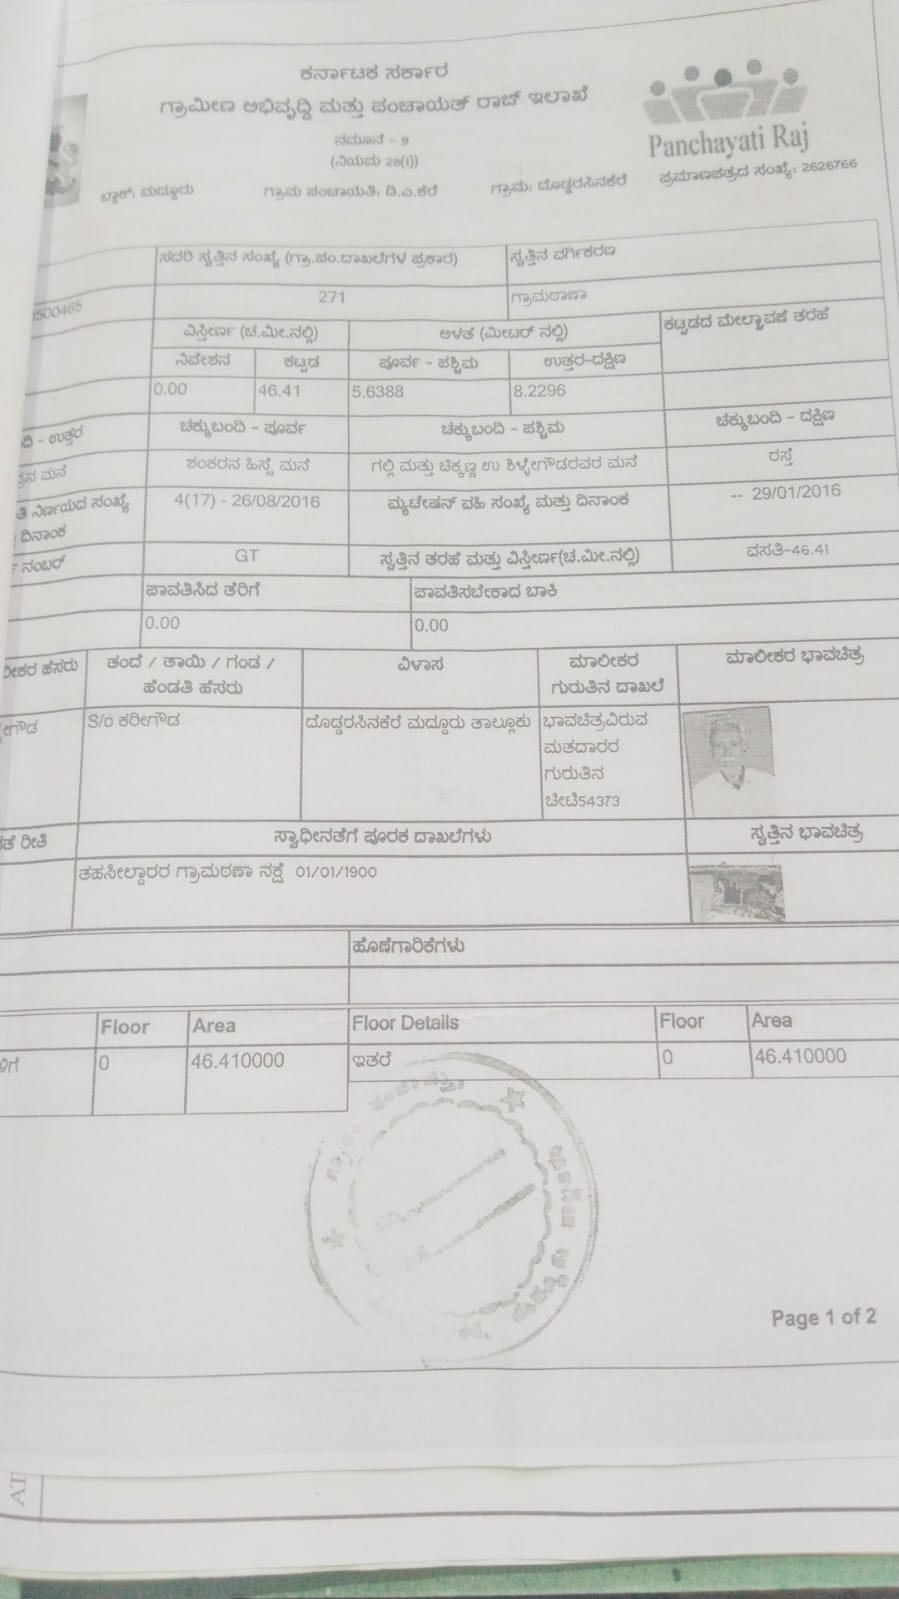 ಕರ್ನಾಟಕ ಸರ್ಕಾರ
ಗ್ರಾಮೀಣ ಅಭಿವೃದ್ಧಿ ಮತ್ತು ಪಂಚಾಯತ್ ರಾಜ್ ಇಲಾಖೆ
Panchayati Raj
ನಮೂನೆ - 9
(ನಿಯಮ 28(1))
ಬ್ಲಾಕ್: ಮದ್ದೂರು ಗ್ರಾಮ ಪಂಚಾಯತಿ: ಡಿ.ಎ.ಕೆರೆ ಗ್ರಾಮ: ದೊಡ್ಡರಸಿನಕೆರೆ ಪ್ರಮಾಣಪತ್ರದ ಸಂಖ್ಯೆ: 2626766
ಸದರಿ ಸ್ವತ್ತಿನ ಸಂಖ್ಯೆ (ಗ್ರಾ.ಪಂ.ದಾಖಲೆಗಳ ಪ್ರಕಾರ) ಸ್ವತ್ತಿನ ವರ್ಗೀಕರಣ
500465 271 ಗ್ರಾಮಠಾಣಾ
ವಿಸ್ತೀರ್ಣ (ಚ.ಮೀ.ನಲ್ಲಿ) ಅಳತೆ (ಮೀಟರ್ ನಲ್ಲಿ) ಕಟ್ಟಡದ ಮೇಲ್ಛಾವಣಿ ತರಹೆ
ನಿವೇಶನ ಕಟ್ಟಡ ಪೂರ್ವ - ಪಶ್ಚಿಮ ಉತ್ತರ-ದಕ್ಷಿಣ
0.00 46.41 5.6388 8.2296
ದಿ - ಉತ್ತರ ಚಕ್ಕುಬಂದಿ - ಪೂರ್ವ ಚಕ್ಕುಬಂದಿ - ಪಶ್ಚಿಮ ಚಕ್ಕುಬಂದಿ - ದಕ್ಷಿಣ
ಮನೆ ಶಂಕರನ ಹಿಸ್ಸೆ ಮನೆ ಗಲ್ಲಿ ಮತ್ತು ಚಿಕ್ಕಣ್ಣ ಉ ಶಿಳ್ಳೇಗೌಡರವರ ಮನೆ ರಸ್ತೆ
ತಿ ನಿರ್ಣಯದ ಸಂಖ್ಯೆ 4(17) - 26/08/2016 ಮ್ಯುಟೇಷನ್ ವಹಿ ಸಂಖ್ಯೆ ಮತ್ತು ದಿನಾಂಕ -- 29/01/2016
ದಿನಾಂಕ
ನಂಬರ್ GT ಸ್ವತ್ತಿನ ತರಹೆ ಮತ್ತು ವಿಸ್ತೀರ್ಣ(ಚ.ಮೀ.ನಲ್ಲಿ) ವಸತಿ-46.41
ಪಾವತಿಸಿದ ತೆರಿಗೆ ಪಾವತಿಸಬೇಕಾದ ಬಾಕಿ
0.00 0.00
ೀಕರ ಹೆಸರು ತಂದೆ / ತಾಯಿ / ಗಂಡ / ವಿಳಾಸ ಮಾಲೀಕರ ಮಾಲೀಕರ ಭಾವಚಿತ್ರ
ಹೆಂಡತಿ ಹೆಸರು ಗುರುತಿನ ದಾಖಲೆ
ಗೌಡ S/o ಕರೀಗೌಡ ದೊಡ್ಡರಸಿನಕೆರೆ ಮದ್ದೂರು ತಾಲ್ಲೂಕು ಭಾವಚಿತ್ರವಿರುವ
ಮತದಾರರ
ಗುರುತಿನ
ಚೀಟಿ54373
ರೀತಿ ಸ್ವಾಧೀನತೆಗೆ ಪೂರಕ ದಾಖಲೆಗಳು ಸ್ವತ್ತಿನ ಭಾವಚಿತ್ರ
ತಹಸೀಲ್ದಾರರ ಗ್ರಾಮಠಣಾ ನಕ್ಷೆ 01/01/1900
ಹೊಣೆಗಾರಿಕೆಗಳು
Floor Area Floor Details Floor Area
0 46.410000 ಇತರೆ 0 46.410000
Page 1 of 2
AT